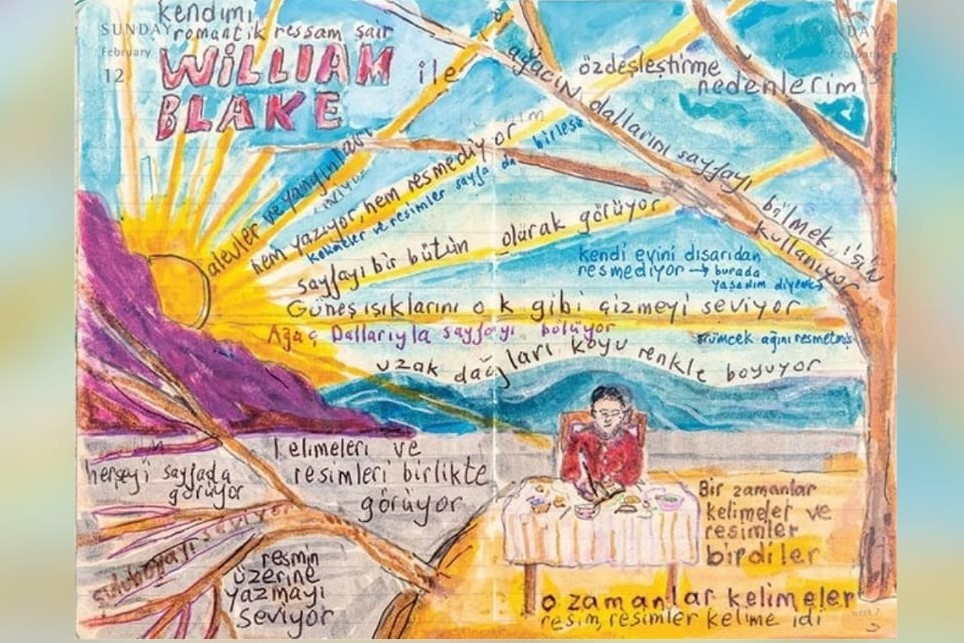 kendimi
SUNDAY romantik ressam şair
February
12
WILLIAM ile
BLAKE
özdeşleştirme
nedenlerim
ağacın dallarını sayfayı
bölmek için
kullanıyor
alevler ne yangınları
hem yazıyor, hem resmediyor
kelimeler ve resimler sayfa da birleşi
sayfayı bir bütün olarak görüyor
kendi evini dışarıdan
resmediyor → burada
yaşadım diyerek
Güneş ışıklarını ok gibi çizmeyi seviyor
Ağaç Dallarıyla sayfayı bölüyor
örümcek ağını resmetmiş
uzak dağları koyu renkle boyuyor
herşeyi sayfada
görüyor
kelimeleri ve
resimleri birlikte
görüyor
suluboyayı
resmin
üzerine
yazmayı
seviyor
Bir zamanlar
kelimeler ve
resimler
birdiler
o zamanlar kelimeler
resim, resimler kelime idi